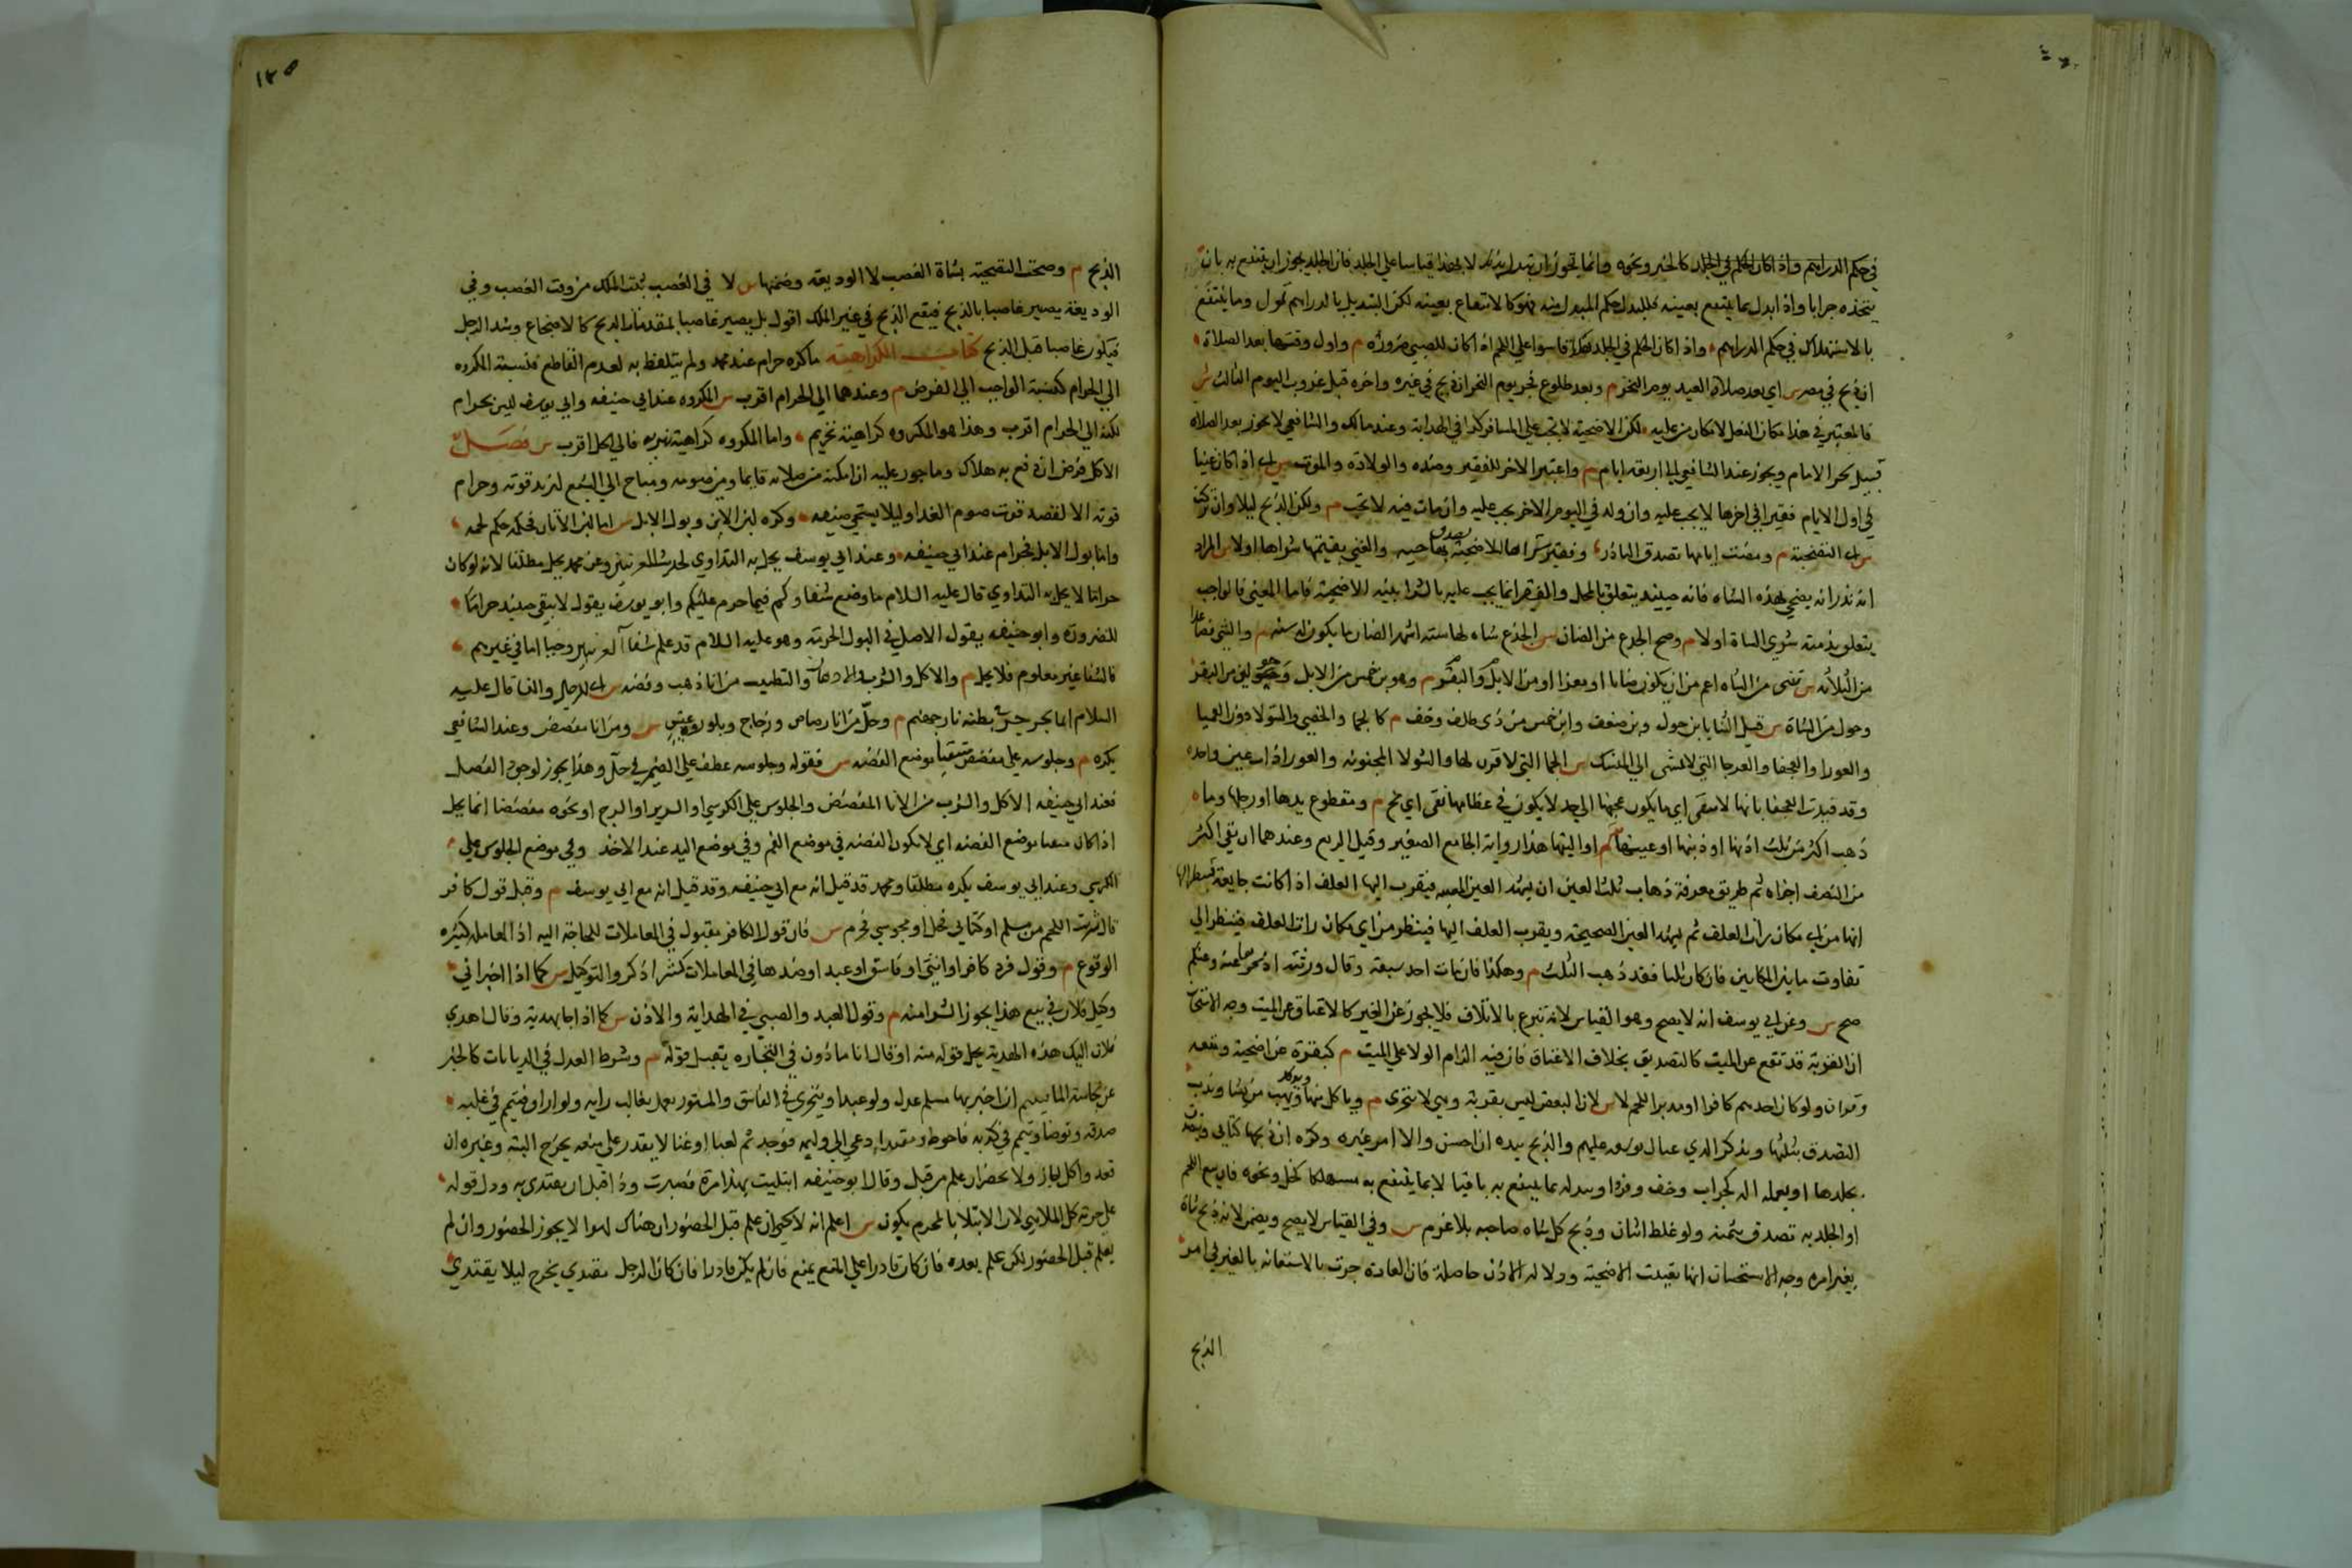 في حكم الدراهم واذا كان الحكم في الجلد كالخبز ونحوه وانما تجوز ان يتبدل به قياسا علي الجلد فان الجلد يجوز ان ينتفع به بان
يتخذه جرابا واذا ابدل بما ينتفع بعينه فللبدل حكم المبدل منه فهو كالانتفاع بعينه لكن التبديل بالدراهم تمول وما ينتفع
بالاستهلاك في حكم الدراهم واذا كان الحكم في الجلد هكذا قاسوا علي اللحم اذا كان للصبي ضرورة م واول وقتها بعد الصلاة
ان ذبح في مصر س اي بعد صلاة العيد يوم النحر م وبعد طلوع فجر يوم النحر ان ذبح في غيره واخره قبل غروب اليوم الثالث س
فالمعتبر في هذا مكان الفعل لا مكان من عليه لكن الاضحية لا تجب علي المسافر كذا في الهداية وعند مالك والشافعي لا يجوز بعد الصلاة
قبيل نحر الامام ويجوز عند الشافعي الي اربعة ايام م واعتبر الاخر للفقير وضده والولادة والموت س اي اذا كان غنيا
في اول الايام فقيرا في اخرها لا يجب عليه وان ولد في اليوم الاخر يجب عليه وان مات فيه لا تجب م وكره الذبح ليلا وان تركت
س اي التضحية م ومضت ايامها تصدق الناذر وفقير شراها للاضحية بها حية والغني بقيمتها شراها اولا س المراد
انه نذر ان يضحي بهذه الشاه فانه حينئذ يتعلق بالمحل والفقير انما يجب عليه بالشرا بنية الاضحية فاما الغني فالواجب
يتعلق بذمته شري الشاة اولا م وصح الجذع من الضان س الجذع شاه لها سته اشهر الضان ما يكون له سنه م والثني فصاعدا
من الثلاثه س ثني من الشاه اعم من ان يكون ضانا او معزا او من الابل والبقر م وهو بن خمس من الابل وحولين من البقر
وحول من الشاة س قيل الثنايا بن حول وبن ضعف وابن خمس من ذي ظلف وخف م كالجما والخصي والتولا دون العميا
والعورا والعجفا والعرجا التي لا تمشي الي المنسك س الجما التي لا قرن لها والثولا المجنونه والعورا ذات عين واحده
وقد قيدت العجفا بانها لا تنقي اي ما يكون عجفها الي حد لا يكون في عظامها نقي اي مخ م ومقطوع يدها او رجلها وما
ذهب اكثر من ثلث اذنها او ذنبها او عينها او اليتها هذا رواية الجامع الصغير وقيل الربع وعندهما ان بقي اكثر
من النصف اجزاه ثم طريق معرفة ذهاب ثلث العين ان يشد العين المعيبه فيقرب اليها العلف اذا كانت جايعة فينظر الي
انها من اي مكان رات العلف ثم يشد العين الصحيحة ويقرب العلف اليها فينظر من اي مكان رات العلف فينظر الي
تفاوت ما بين المكانين فان كان ثلثا فقد ذهب الثلث م وهكذا فان مات احد سبعة وقال ورثته اذبحوها عنه وعنكم
صح س وعن ابي يوسف انه لا يصح وهو القياس لانه تبرع بالاتلاف فلا يجوز عن الغير كالاعتاق عن الميت وجه الاستحسان
ان القربة قد تقع عن الميت كالتصديق بخلاف الاعتاق فان فيه الزام الولا علي الميت م كبقرة عن اضحية ومتعه
وقران ولو كان احدهم كافرا او مريد اللحم لا س لان البعض ليس بقربة وهي لا تتجزي م وياكل منها ويوكل ويهب من يشا وندب
التصدق بثلثها وتركه لذي عيال توسعه عليهم والذبح بيده ان احسن والا امر غيره وكره ان ذبحها كتابي ويتصدق
بجلدها او يعمله اله كجراب وخف وفرو او يبدله بما ينتفع به باقيا لا بما ينتفع به مستهلكا كخل ونحوه فان بيع اللحم
او الجلد به تصدق بثمنه ولو غلط اثنان وذبح كل شاه صاحبه بلا غرم س وفي القياس لا يصح ويضمن لانه ذبح شاة
بغير امره وجه الاستحسان انها تعينت الاضحية ودلاله الاذن حاصلة فان العادة جرت بالاستعانه بالغير في امر
الذبح
١٢٥
الذبح م وصحت التضحية بشاة الغصب لا الوديعة وضمنها س لا في الغصب ثبت الملك من وقت الغصب وفي
الوديعة يصير غاصبا بالذبح فيقع الذبح في غير الملك اقول بل يصير غاصبا بمقدمات الذبح كالاضجاع وشد الرجل
فيكون غاصبا قبل الذبح كتاب الكراهية ما كره حرام عند محمد ولم يتلفظ به لعدم القاطع فنسبة المكروه
الي الحرام كنسبة الواجب الي الفرض م وعندهما الي الحرام اقرب س المكروه عند ابي حنيفه وابي يوسف ليس بحرام
لكنه الي الحرام اقرب وهذا هو المكروه كراهية تحريم واما المكروه كراهية تنزيه فالي الحل اقرب س فصل
الاكل فرض ان دفع به هلاكه وماجور عليه ان امكنه من صلاته قايما ومن صومه ومباح الي الشبع لتزيد قوته وحرام
فوقه الا لقصد قوت صوم الغد او ليلا يستحي ضيفه وكره لبن الاتن وبول الابل س اما لبن الاتان فحكمه حكم لحمه
واما بول الابل فحرام عند ابي حنيفه وعند ابي يوسف يحل به التداوي لحديث العرنيين وعن محمد يحل مطلقا لانه لو كان
حراما لا يحل به التداوي قال عليه السلام ما وضع شفاوكم فيما حرم عليكم وابو يوسف يقول لا يبقي حينئذ حراما
للضرورة وابو حنيفه يقول الاصل في البول الحرمة وهو عليه السلام قد علم شفا العرنيين وحيا اما في غيرهم
فالشفا غير معلوم فلا يحل م والاكل والشرب والادهان والتطيب من انا ذهب وفضه س اي للرجال والنسا قال عليه
السلام انما يجرجر في بطنه نار جهنم م وحل من انا رصاص وزجاج وبلور وعقيق س ومن انا مفضض وعند الشافعي
يكره م وجلوسه علي مفضض متقيا موضع الفضه س فقوله وجلوسه عطف علي الضمير في حل وهذا يجوز لوجود الفصل
فعند ابي حنيفه الاكل والشرب من الانا المفضض والجلوس علي الكرسي او السرير او السرج او نحوه مفضضا انما يحل
اذا كان متقيا موضع الفضه اي لا يكون الفضه في موضع الفم وفي موضع اليد عند الاخذ وفي موضع الجلوس علي
الكرسي وعند ابي يوسف يكره مطلقا ومحمد قد قيل انه مع ابي حنيفه وقد قيل انه مع ابي يوسف م وقبل قول كافر
قال شريت اللحم من مسلم او كتابي فحل او مجوسي فحرم س فان قول الكافر مقبول في المعاملات للحاجة اليه اذ المعامله كثيره
الوقوع م وقول فرد كافر او انثي او فاسق او عبد او ضدها في المعاملات كشرا ذكر والتوكيل س كما اذا اخبر اني
وكيل فلان في بيع هذا يجوز الشرا منه م وقول العبد والصبي في الهداية والاذن س كما اذا جا بهدية وقال اهدي
فلان اليك هذه الهدية يحل قوله منه او قال انا ماذون في التجاره يقبل قوله م وشرط العدل في الديانات كالخبر
عن نجاسة الما فيتيمم ان اخبر بها مسلم عدل ولو عبدا ويتحري في الفاسق والمستور يعمل بغالب رايه ولو اراق فتيمم في غلبه
صدقه وتوضا وتيمم في كذبه فاحوط ومقتدا دعي الي وليمه فوجد ثم لعبا او غنا لا يقدر علي منعه يخرج البتة وغيره ان
قعد واكل جاز ولا يحضر ان علم من قبل وقال ابو حنيفه ابتليت بهذا مرة فصبرت وذا قبل ان يقتدي به ودل قوله
علي حرمة كل الملاهي لان الابتلا بالمحرم يكون س اعلم انه لا يخلو ان علم قبل الحضور ان هناك لهوا لا يجوز الحضور وان لم
يعلم قبل الحضور لكن علم بعده فان كان قادرا علي المنع يمنع فان لم يكن قادرا فان كان الرجل مقتدي يخرج ليلا يقتدي